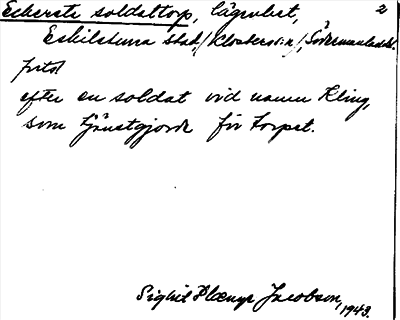 Eckersta soldattorp, lägenhet, 2
Eskilstuna stad, /Klosters s:n/, Södermanlands l.
efter en soldat vid namn Kling,
som tjänstgjorde för torpet.
Sigrid Jacobson, 1943.